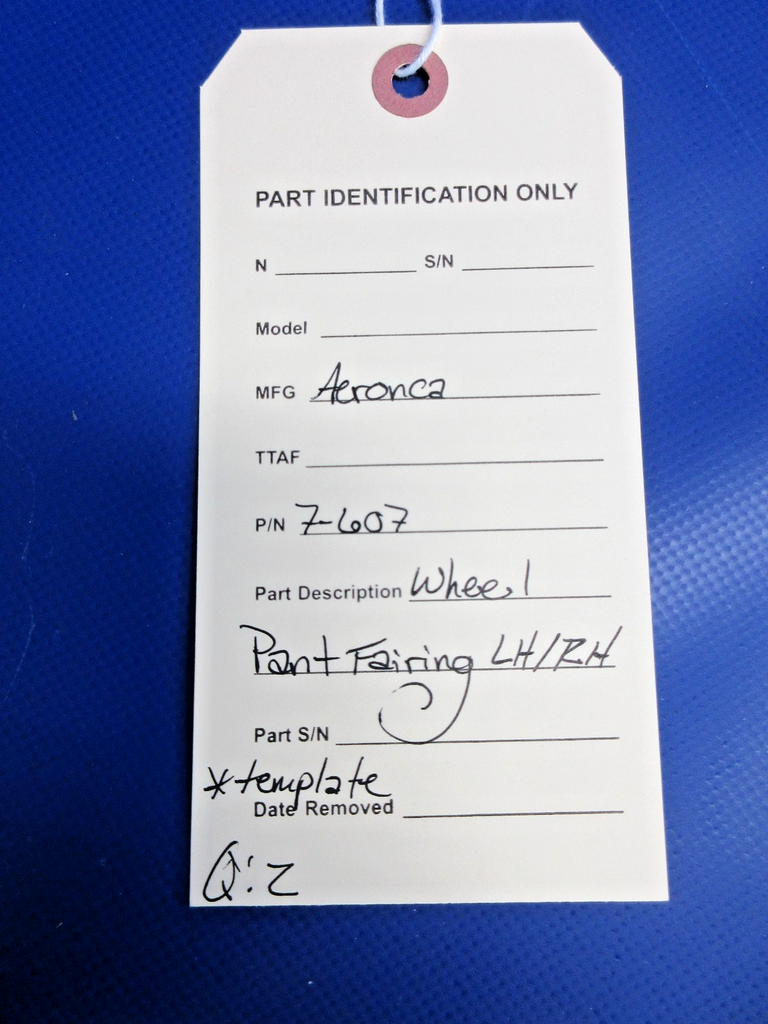 PART IDENTIFICATION ONLY
N S/N
Model
MFG Aeronca
TTAF
P/N 7-607
Part Description Wheel
Pant Fairing LH/RH
Part S/N
*template
Date Removed
Q: 2